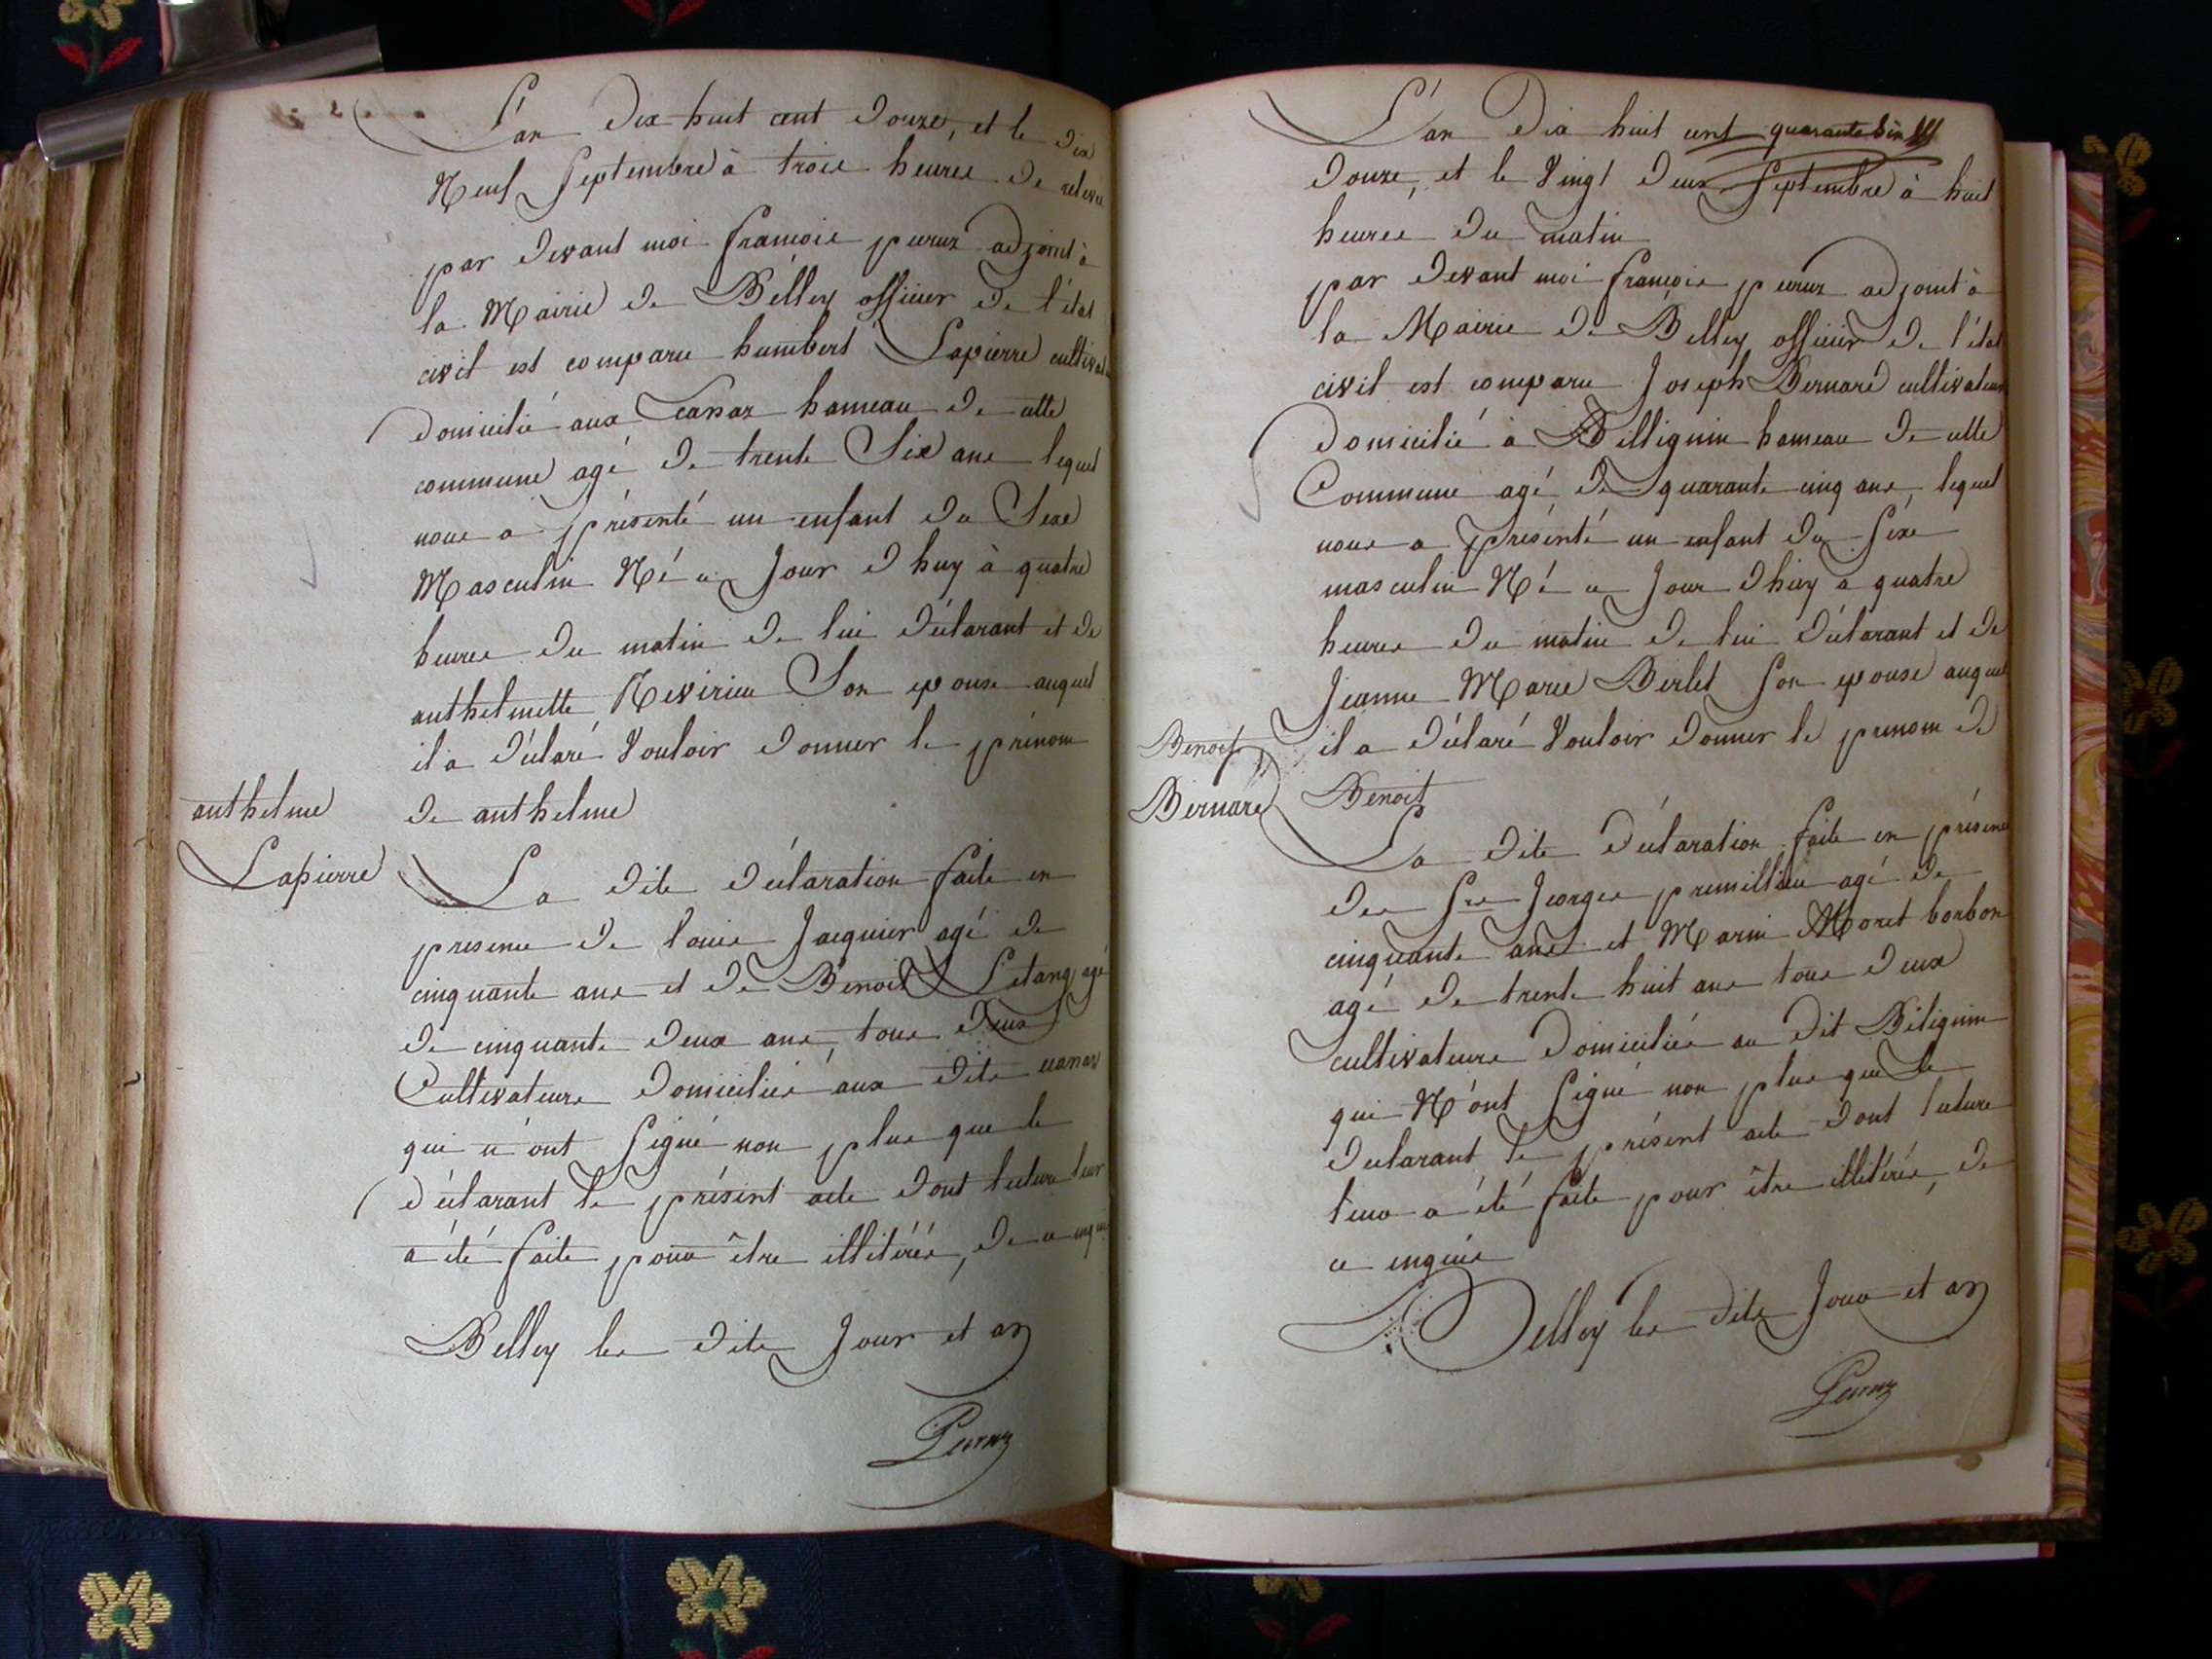 L'an dix huit cent douze, et le dix
Neuf Septembre à trois heures de relevée
par devant moi françois peruz adjoint à
la Mairie de Belley officier de l'état
civil est comparu humbert Lapierre cultivateur
domicilié aux Ecassaz hameau de cette
commune agé de trente Six ans lequel
nous a présenté un enfant du Sexe
Masculin Né ce Jour d'huy à quatre
heures du matin de lui déclarant et de
anthelmette Revirieu Son epouse auquel
il a déclaré Vouloir donner le prénom
anthelme
Lapierre
de anthelme
La dite déclaration faite en
presence de louis Jacquier agé de
cinquante ans et de Benoit Letang agé
de cinquante deux ans, tous deux
Cultivateurs domiciliés aux dits
qui n'ont Signé non plus que le
déclarant le présent acte dont lecture leur
a été faite pour être illitérés, de ce enquis
Belley les dits Jour et an
L'an dix huit cent
douze, et le Vingt deux Septembre à huit
heures du matin
par devant moi françois peruz adjoint à
la Mairie de Belley officier de l'état
civil est comparu Joseph Bernard cultivateur
domicilié à Billignin hameau de cette
Commune agé de quarante cinq ans, lequel
nous a présenté un enfant du Sexe
masculin Né ce Jour d'huy a quatre
heures du matin de lui déclarant et de
Jeanne Marie Berlet Son epouse auquel
il a déclaré Vouloir donner le prenom de
Benoit
Bernard
Benoit
La dite déclaration faite en présence
des Srs Georges premillieu agé de
cinquante ans et Marin Moret borbon
agé de trente huit ans tous deux
cultivateurs domiciliés au dit Bilignin
qui N'ont Signé non plus que le
declarant le présent acte dont lecture
leur a été faite pour être illitérés, de
ce enquis
Belley les dits Jour et an